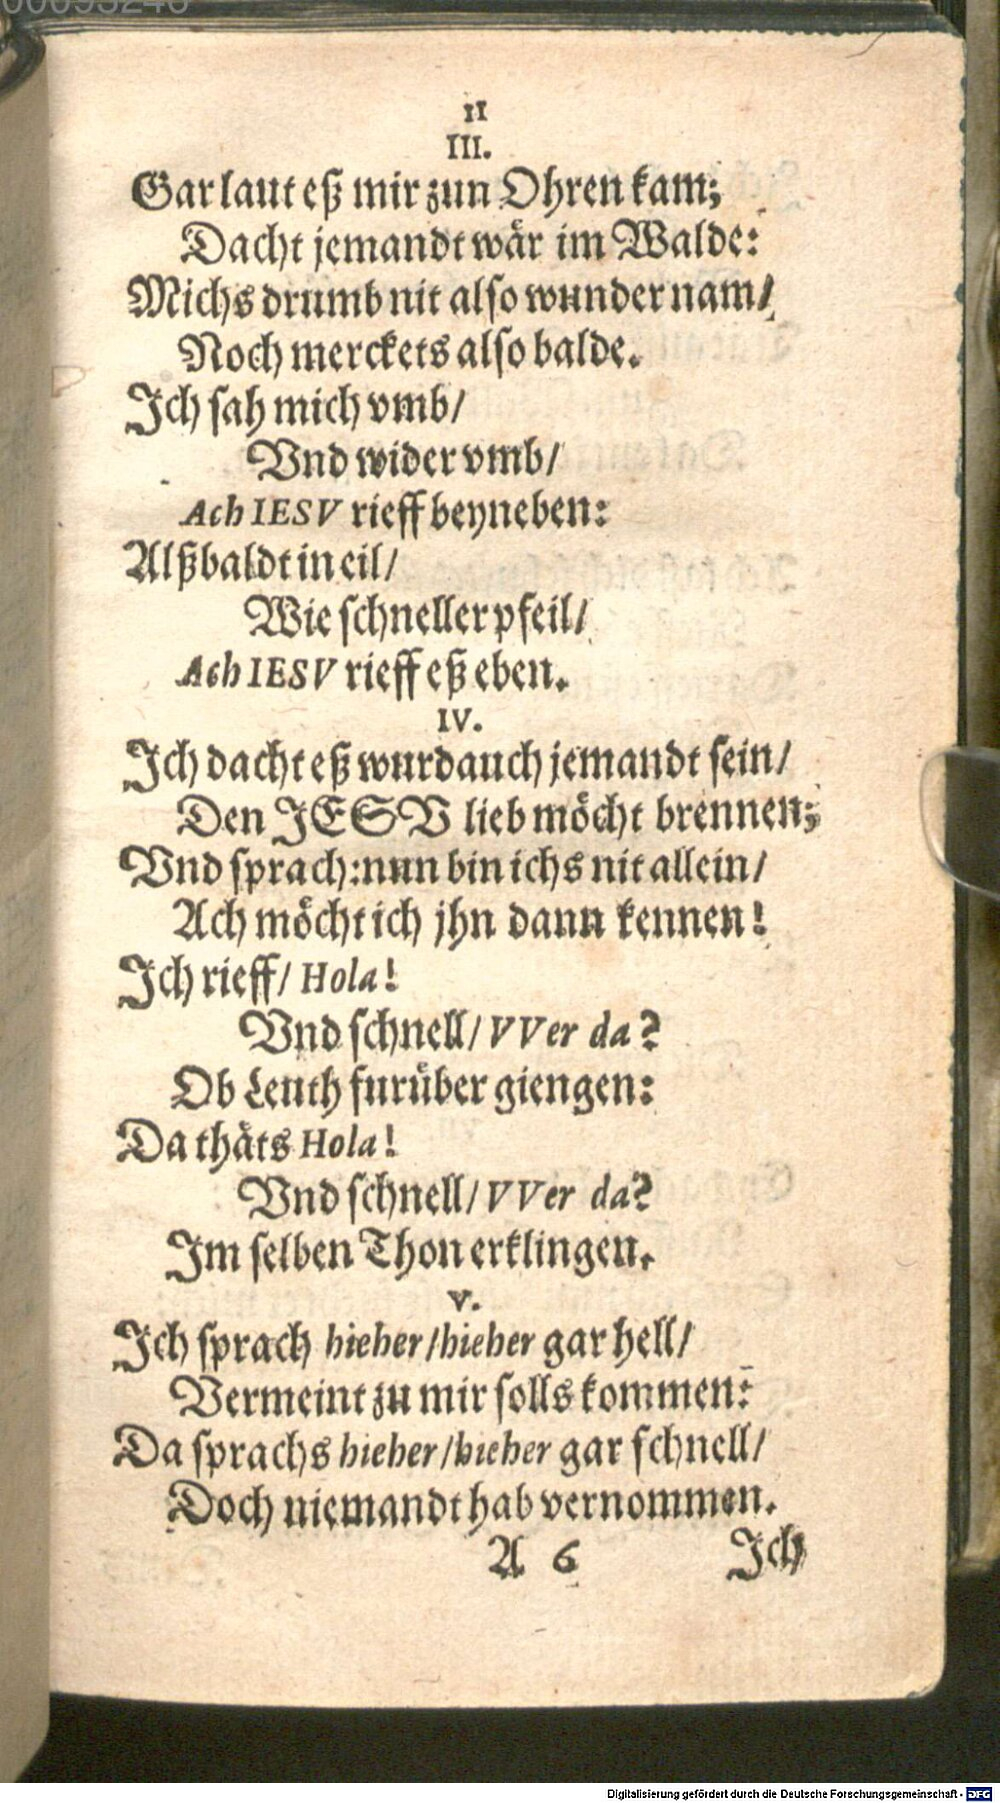 00095246
11
III.
Gar laut eß mir zun Ohren kam;
Dacht jemandt wär im Walde:
Michs drumb nit also wunder nam/
Noch merckets also balde.
Ich sah mich vmb/
Vnd wider vmb/
Ach IESV rieff beyneben:
Alßbaldt in eil/
Wie schneller pfeil/
Ach IESV rieff eß eben.
IV.
Ich dacht eß wurd auch jemandt sein/
Den JESV lieb möcht brennen;
Vnd sprach: nun bin ichs nit allein/
Ach möcht ich jhn dann kennen!
Ich rieff/ Hola!
Vnd schnell/ VVer da?
Ob Leuth furüber giengen:
Da thäts Hola!
Vnd schnell/ VVer da?
Im selben Thon erklingen.
V.
Ich sprach hieher/hieher gar hell/
Vermeint zu mir solls kommen:
Da sprachs hieher/hieher gar schnell/
Doch niemandt hab vernommen.
A 6 Ich
Digitalisierung gefördert durch die Deutsche Forschungsgemeinschaft - DFG